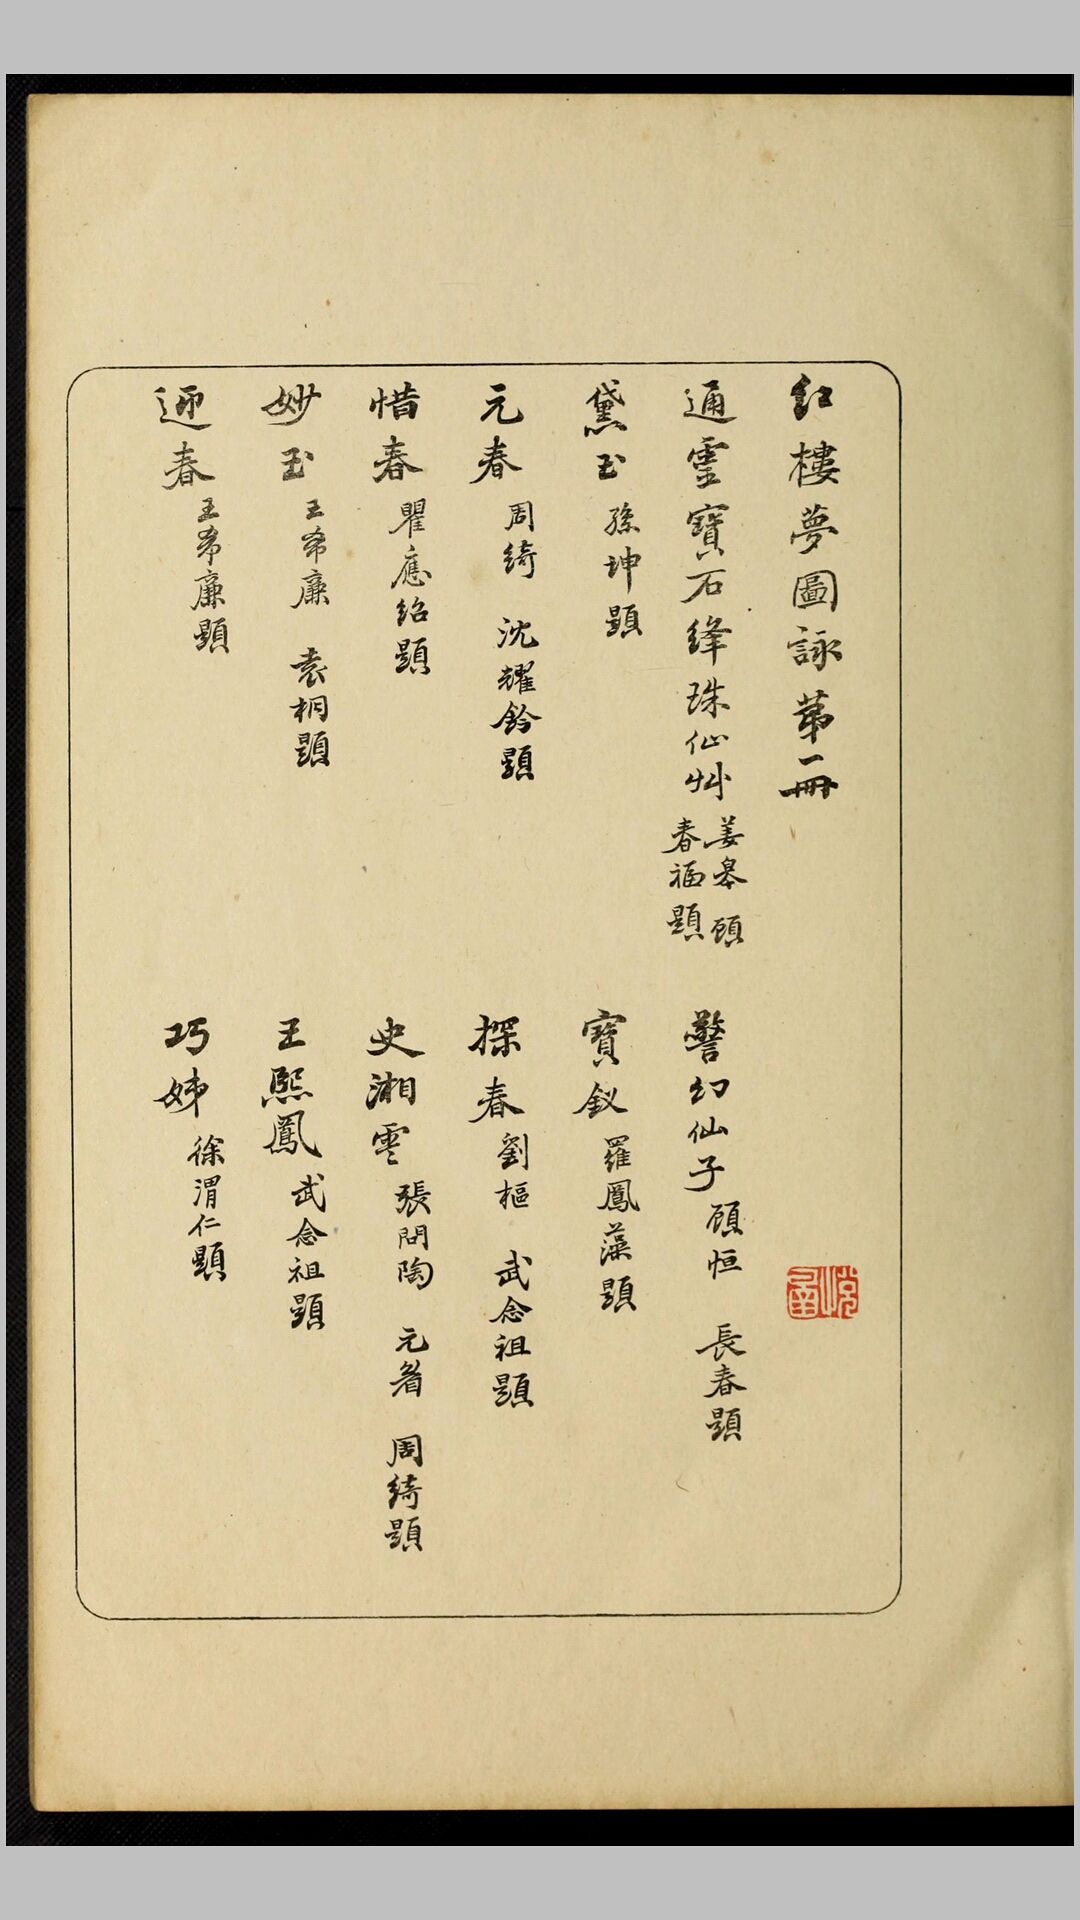 紅樓夢圖詠第一冊
通靈寶石絳珠仙艸 姜皋 顧春福題
警幻仙子 顧恒 長春題
黛玉 孫坤題
寶釵 羅鳳藻題
元春 周綺 沈耀鈐題
探春 劉樞 武念祖題
惜春 瞿應紹題
史湘雲 張問陶 周綺題
妙玉 王希廉 袁桐題
王熙鳳 武念祖題
迎春 王希廉題
巧姊 徐渭仁題